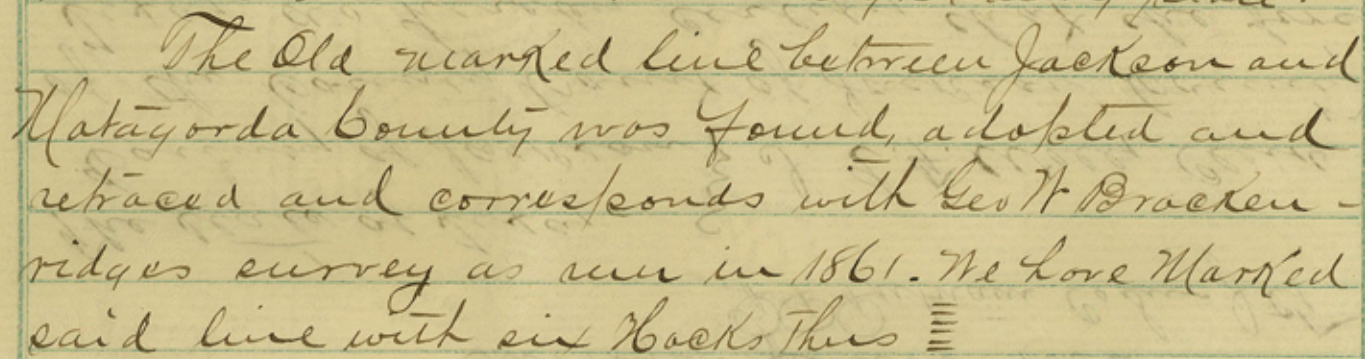 The Old marked line between Jackson and
Matagorda County was found, adopted and
retraced and corresponds with Geo W Bracken-
ridges survey as run in 1861. We have Marked
said line with six Hacks Thus